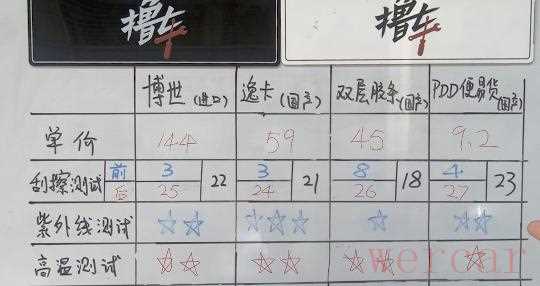 撸车 撸车
博世(进口) 逸卡(国产) 双层胶条(国产) PDD便易货(国产)
单价 144 59 45 9.2
刮擦测试 前 3 22 3 21 8 18 4 23
后 25 24 26 27
紫外线测试 ☆☆ ☆☆☆ ☆ ☆☆
高温测试 ☆☆ ☆☆ ☆☆ ☆
wercar